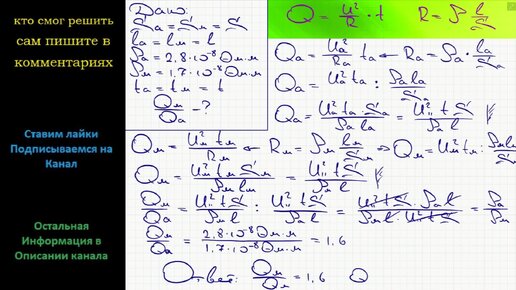 кто смог решить
сам пишите в
комментариях
Ставим лайки
Подписываемся на
Канал
Остальная
Информация в
Описании канала
Дано:
Sа = Sм = S
lа = lм = l
ρа = 2,8·10⁻⁸ Ом·м
ρм = 1,7·10⁻⁸ Ом·м
tа = tм = t
Qм/Qа - ?
Q = U²/R · t R = ρ l/S
Qа = Uа²/Rа tа ← Rа = ρа · lа/Sа
Qа = Uа² tа : ρа lа/Sа
Qа = Uа² tа · Sа/ρа lа = U² t S/ρа l
Qм = Uм² tм/Rм ← Rм = ρм lм/Sм → Qм = Uм² tм : ρм lм/Sм
Qм = Uм² tм Sм/ρм lм = U² t S/ρм l
Qм/Qа = U² t S/ρм l : U² t S/ρа l = U² t S · ρа l/ρм l · U² t S = ρа/ρм
Qм/Qа = 2,8·10⁻⁸ Ом·м/1,7·10⁻⁸ Ом·м = 1,6
Ответ: Qм/Qа = 1,6